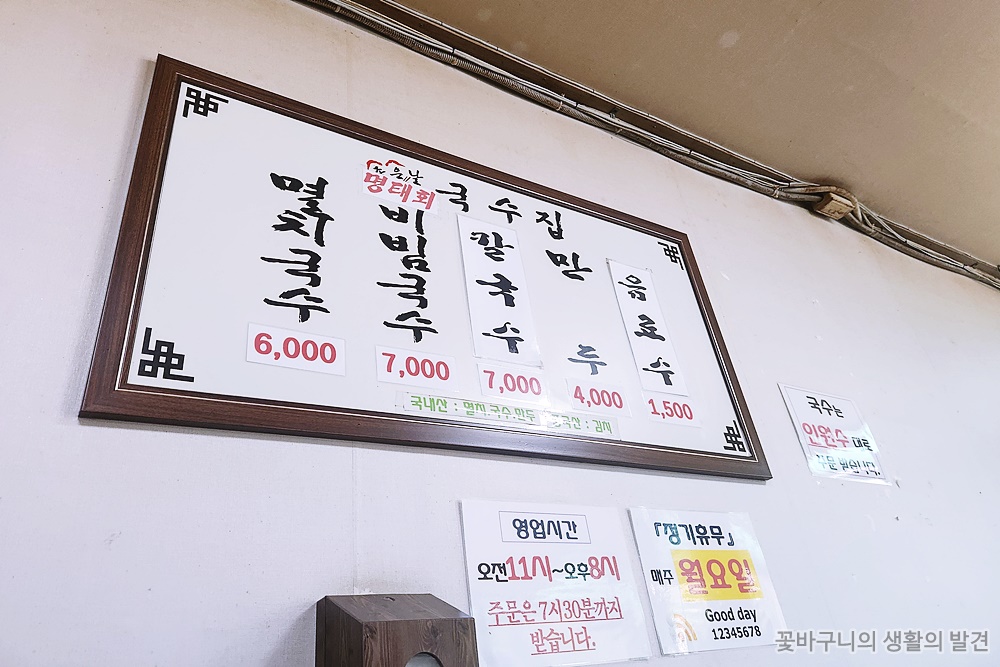 좋은날
명태회
국수집
멸치국수
6,000
비빔국수
7,000
칼국수
7,000
만두
4,000
음료수
1,500
국내산 : 멸치.국수.만두 중국산 : 김치
국수는
인원수 대로
주문 받습니다.
영업시간
오전11시~오후8시
주문은 7시30분까지
받습니다.
『정기휴무』
매주 월요일
Good day
12345678
꽃바구니의 생활의 발견